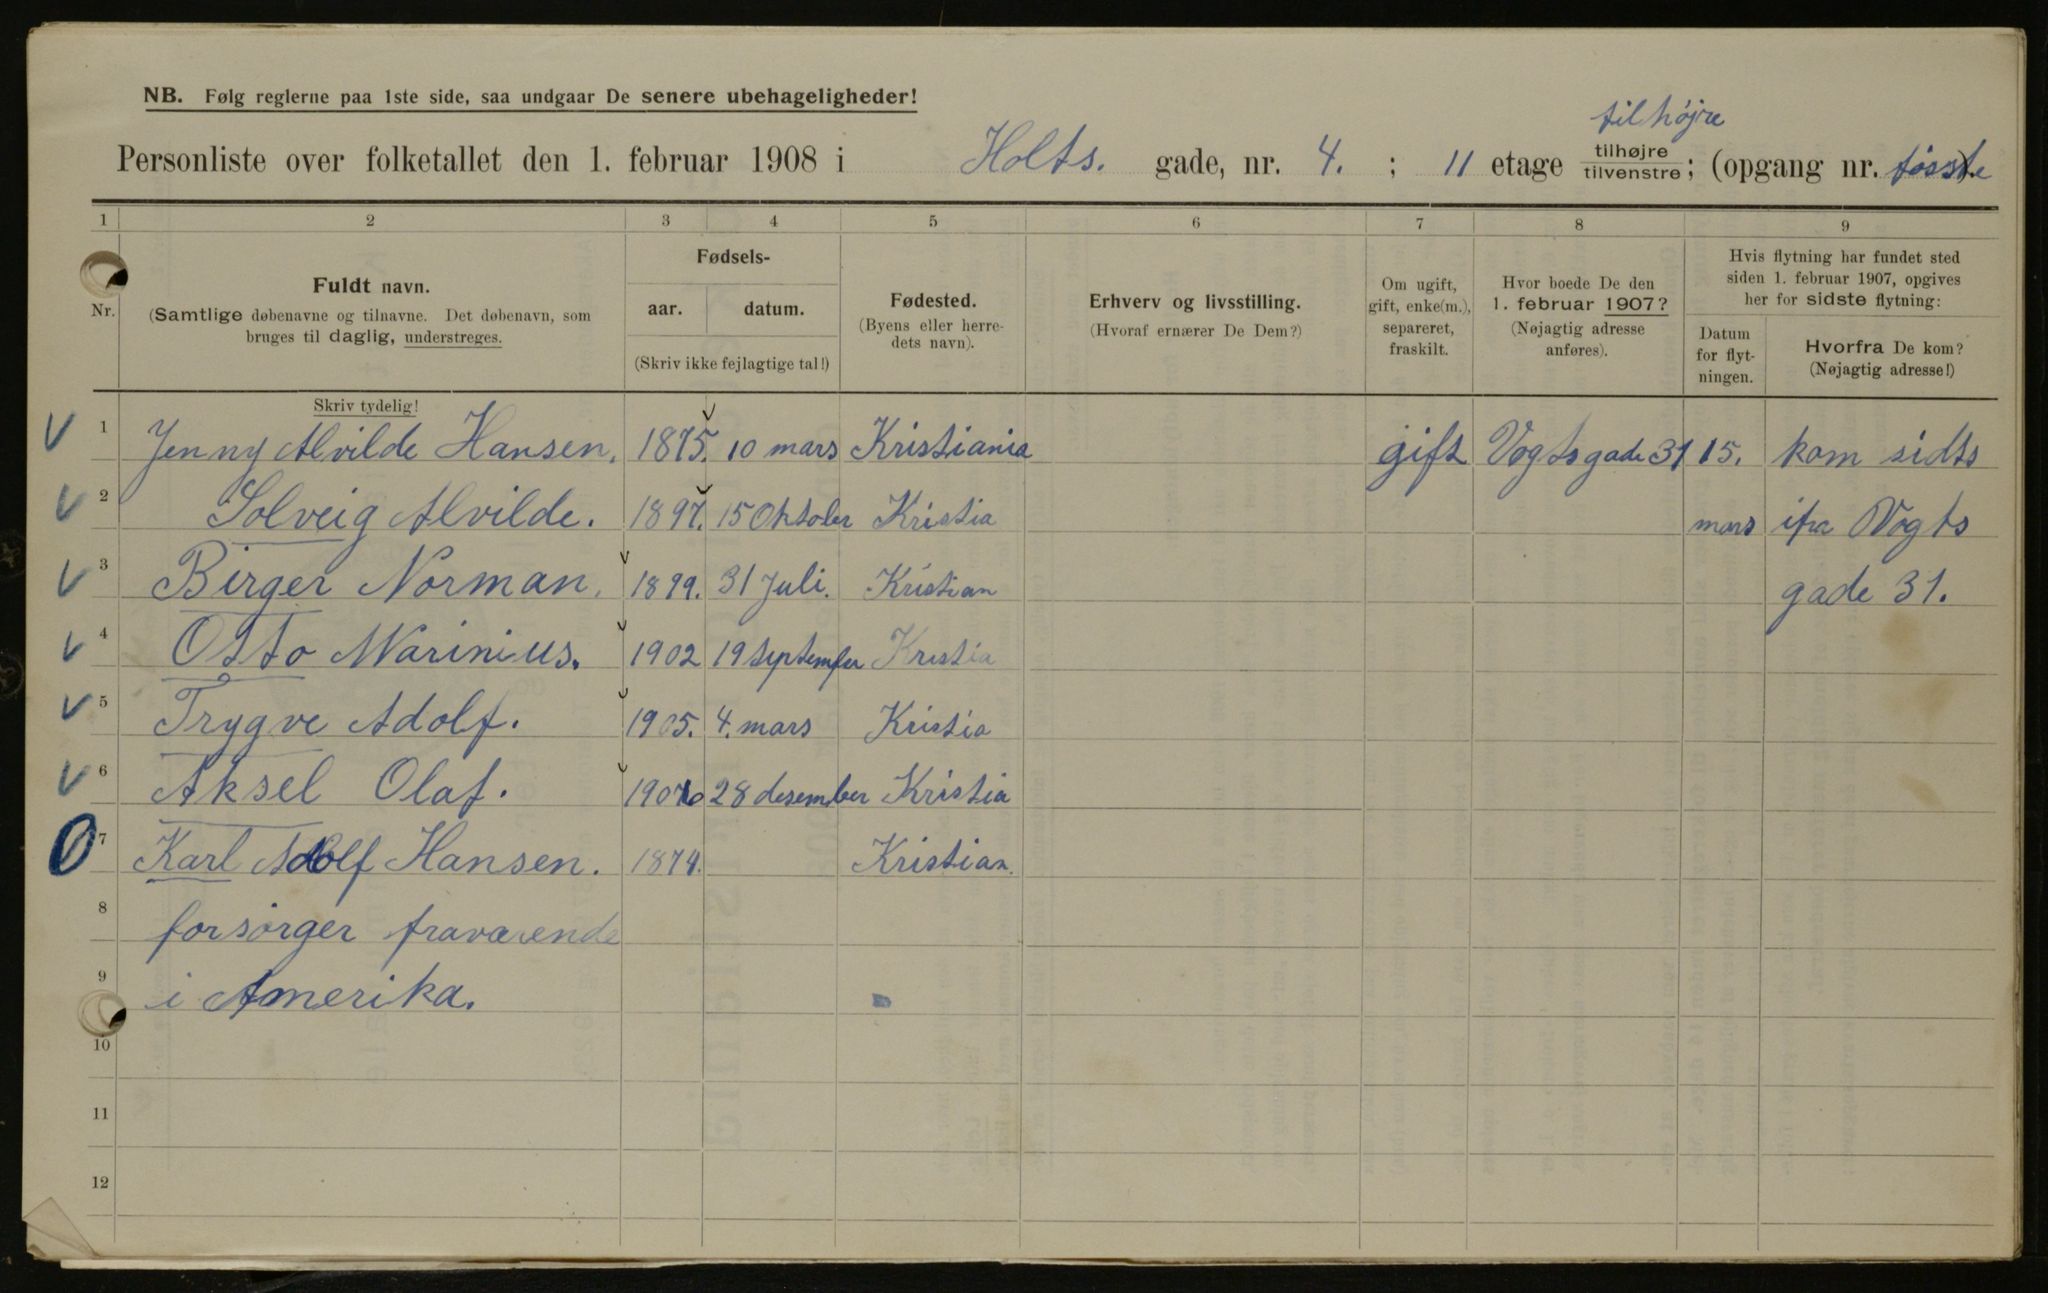 NB. Følg reglerne paa 1ste side, saa undgaar De senere ubehageligheder!
til højre
Personliste over folketallet den 1. februar 1908 i Holts. gade, nr. 4. ; 11 etage tilhøjre tilvenstre; (opgang nr.
1 2 3 4 5 6 7 8 9
Nr.
Fuldt navn.
(Samtlige døbenavne og tilnavne. Det døbenavn, som
bruges til daglig, understreges.
Skriv tydelig!
Fødsels-
aar. datum.
(Skriv ikke fejlagtige tal!)
Fødested.
(Byens eller herre-
dets navn).
Erhverv og livsstilling.
(Hvoraf ernærer De Dem?)
Om ugift,
gift, enke(m.),
separeret,
fraskilt.
Hvor boede De den
1. februar 1907?
(Nøjagtig adresse
anføres).
Hvis flytning har fundet sted
siden 1. februar 1907, opgives
her for sidste flytning:
Datum
for flyt-
ningen.
Hvorfra De kom?
(Nøjagtig adresse!)
1 Jenny Alvilde Hansen. 1875. 10 mars Kristiania gift Vogts gade 31 15. kom sidts
2 Solveig Alvilde. 1897. 15 Oktober Kristia mars ifra Vogts
3 Birger Norman. 1899. 31 Juli. Kristian gade 31.
4 Otto Marinius. 1902 19 september Kristia
5 Trygve Adolf. 1905. 4. mars Kristia
6 Aksel Olaf. 28 desember Kristia
7 Karl Adolf Hansen. 1874. Kristian.
8 forsørger fraværende
9 i Amerika.
10
11
12